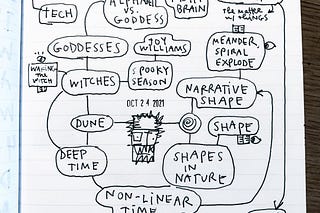 TECH
ALPHABET
VS.
GODDESS
BRAIN
The Matter
W/ THINGS
GODDESSES
JOY
WILLIAMS
MEANDER,
SPIRAL
EXPLODE
WAKING
THE
WITCH
WITCHES
SPOOKY
SEASON
NARRATIVE
SHAPE
OCT 24 2021
DUNE
SHAPE
DEEP
TIME
SHAPES
IN
NATURE
NON-LINEAR
TIME